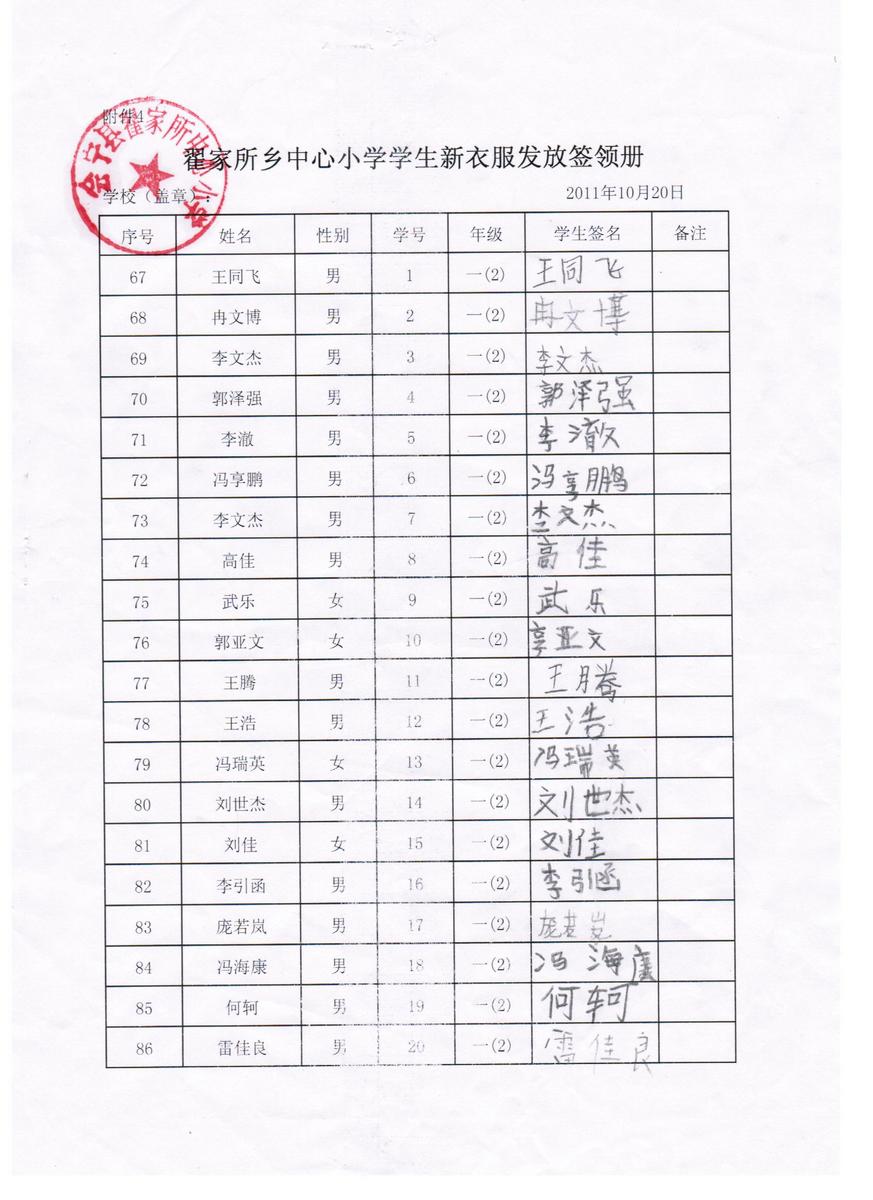 附件4
会宁县翟家所中心小学
翟家所乡中心小学学生新衣服发放签领册
学校（盖章）： 2011年10月20日
序号 姓名 性别 学号 年级 学生签名 备注
67 王同飞 男 1 一(2) 王同飞
68 冉文博 男 2 一(2) 冉文博
69 李文杰 男 3 一(2) 李文杰
70 郭泽强 男 4 一(2) 郭泽强
71 李澈 男 5 一(2) 李澈
72 冯享鹏 男 6 一(2) 冯享鹏
73 李文杰 男 7 一(2) 李文杰
74 高佳 男 8 一(2) 高佳
75 武乐 女 9 一(2) 武乐
76 郭亚文 女 10 一(2) 郭亚文
77 王腾 男 11 一(2) 王腾
78 王浩 男 12 一(2) 王浩
79 冯瑞英 女 13 一(2) 冯瑞英
80 刘世杰 男 14 一(2) 刘世杰
81 刘佳 女 15 一(2) 刘佳
82 李引函 男 16 一(2) 李引函
83 庞若岚 男 17 一(2) 庞若岚
84 冯海康 男 18 一(2) 冯海康
85 何轲 男 19 一(2) 何轲
86 雷佳良 男 20 一(2) 雷佳良